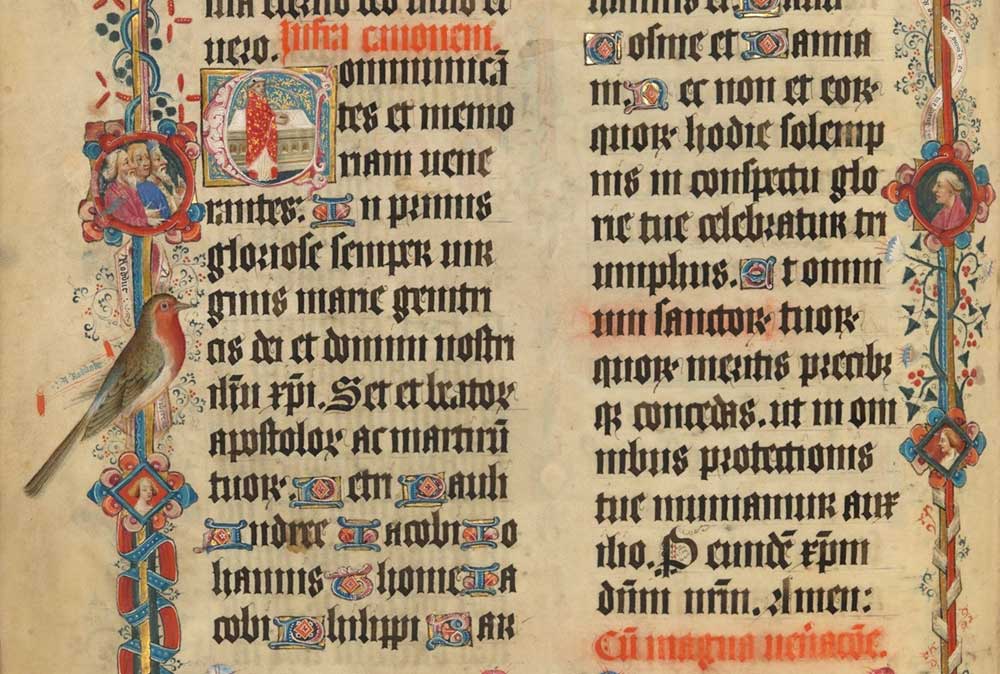 uero. Infra canonem.
Communicā
tes et memo
riam uene
rantes: In primis
gloriose semper uir
ginis marie genitri
cis dei et domini nostri
ihū xp̄i. Set et beatoꝝ
apostoloꝝ ac martirū
tuoꝝ. Petri Pauli
Andree Iacobi Io
hannis Thome Ia
cobi Philippi Bar
Cosme et Damia
ni. Nec non et eoꝝ
quoꝝ hodie solemp
nis in conspectu glo
rie tue celebratur tri
umphus. Et omni
um sanctoꝝ tuoꝝ
quoꝝ meritis precib
qꝫ concedas. ut in om
nibus protectionis
tue muniamur aux
ilio. P eundē xp̄m
dn̄m nr̄m. Amen:
Cū magna uen̄acōe.